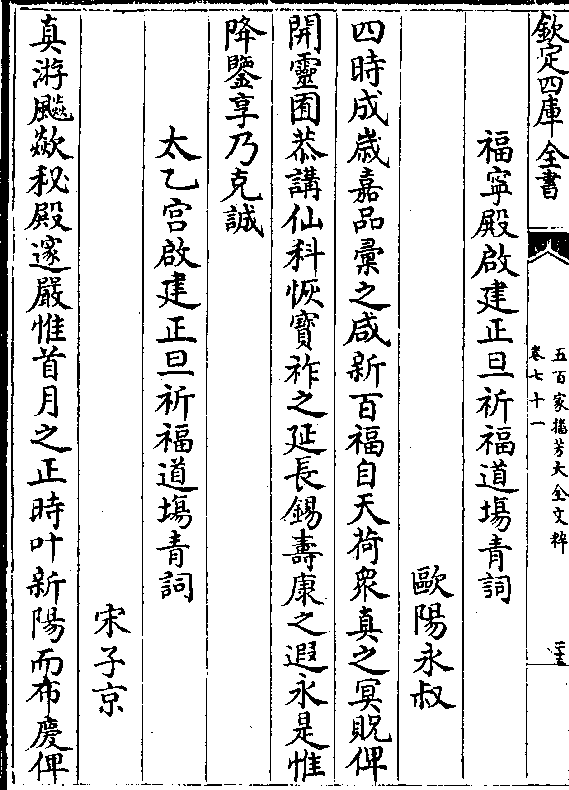 欽定四庫全書
五百家播芳大全文粹
卷七十一
三十五
福寧殿啟建正旦祈福道塲青詞
歐陽永叔
四時成歲嘉品彚之咸新百福自天荷衆真之冥貺俾
開靈囿恭講仙科恢寳祚之延長錫壽康之遐永是惟
降鑒享乃克誠
太乙宫啟建正旦祈福道塲青詞
宋子京
真游飈歘秘殿邃嚴惟首月之正時叶新陽而布慶俾